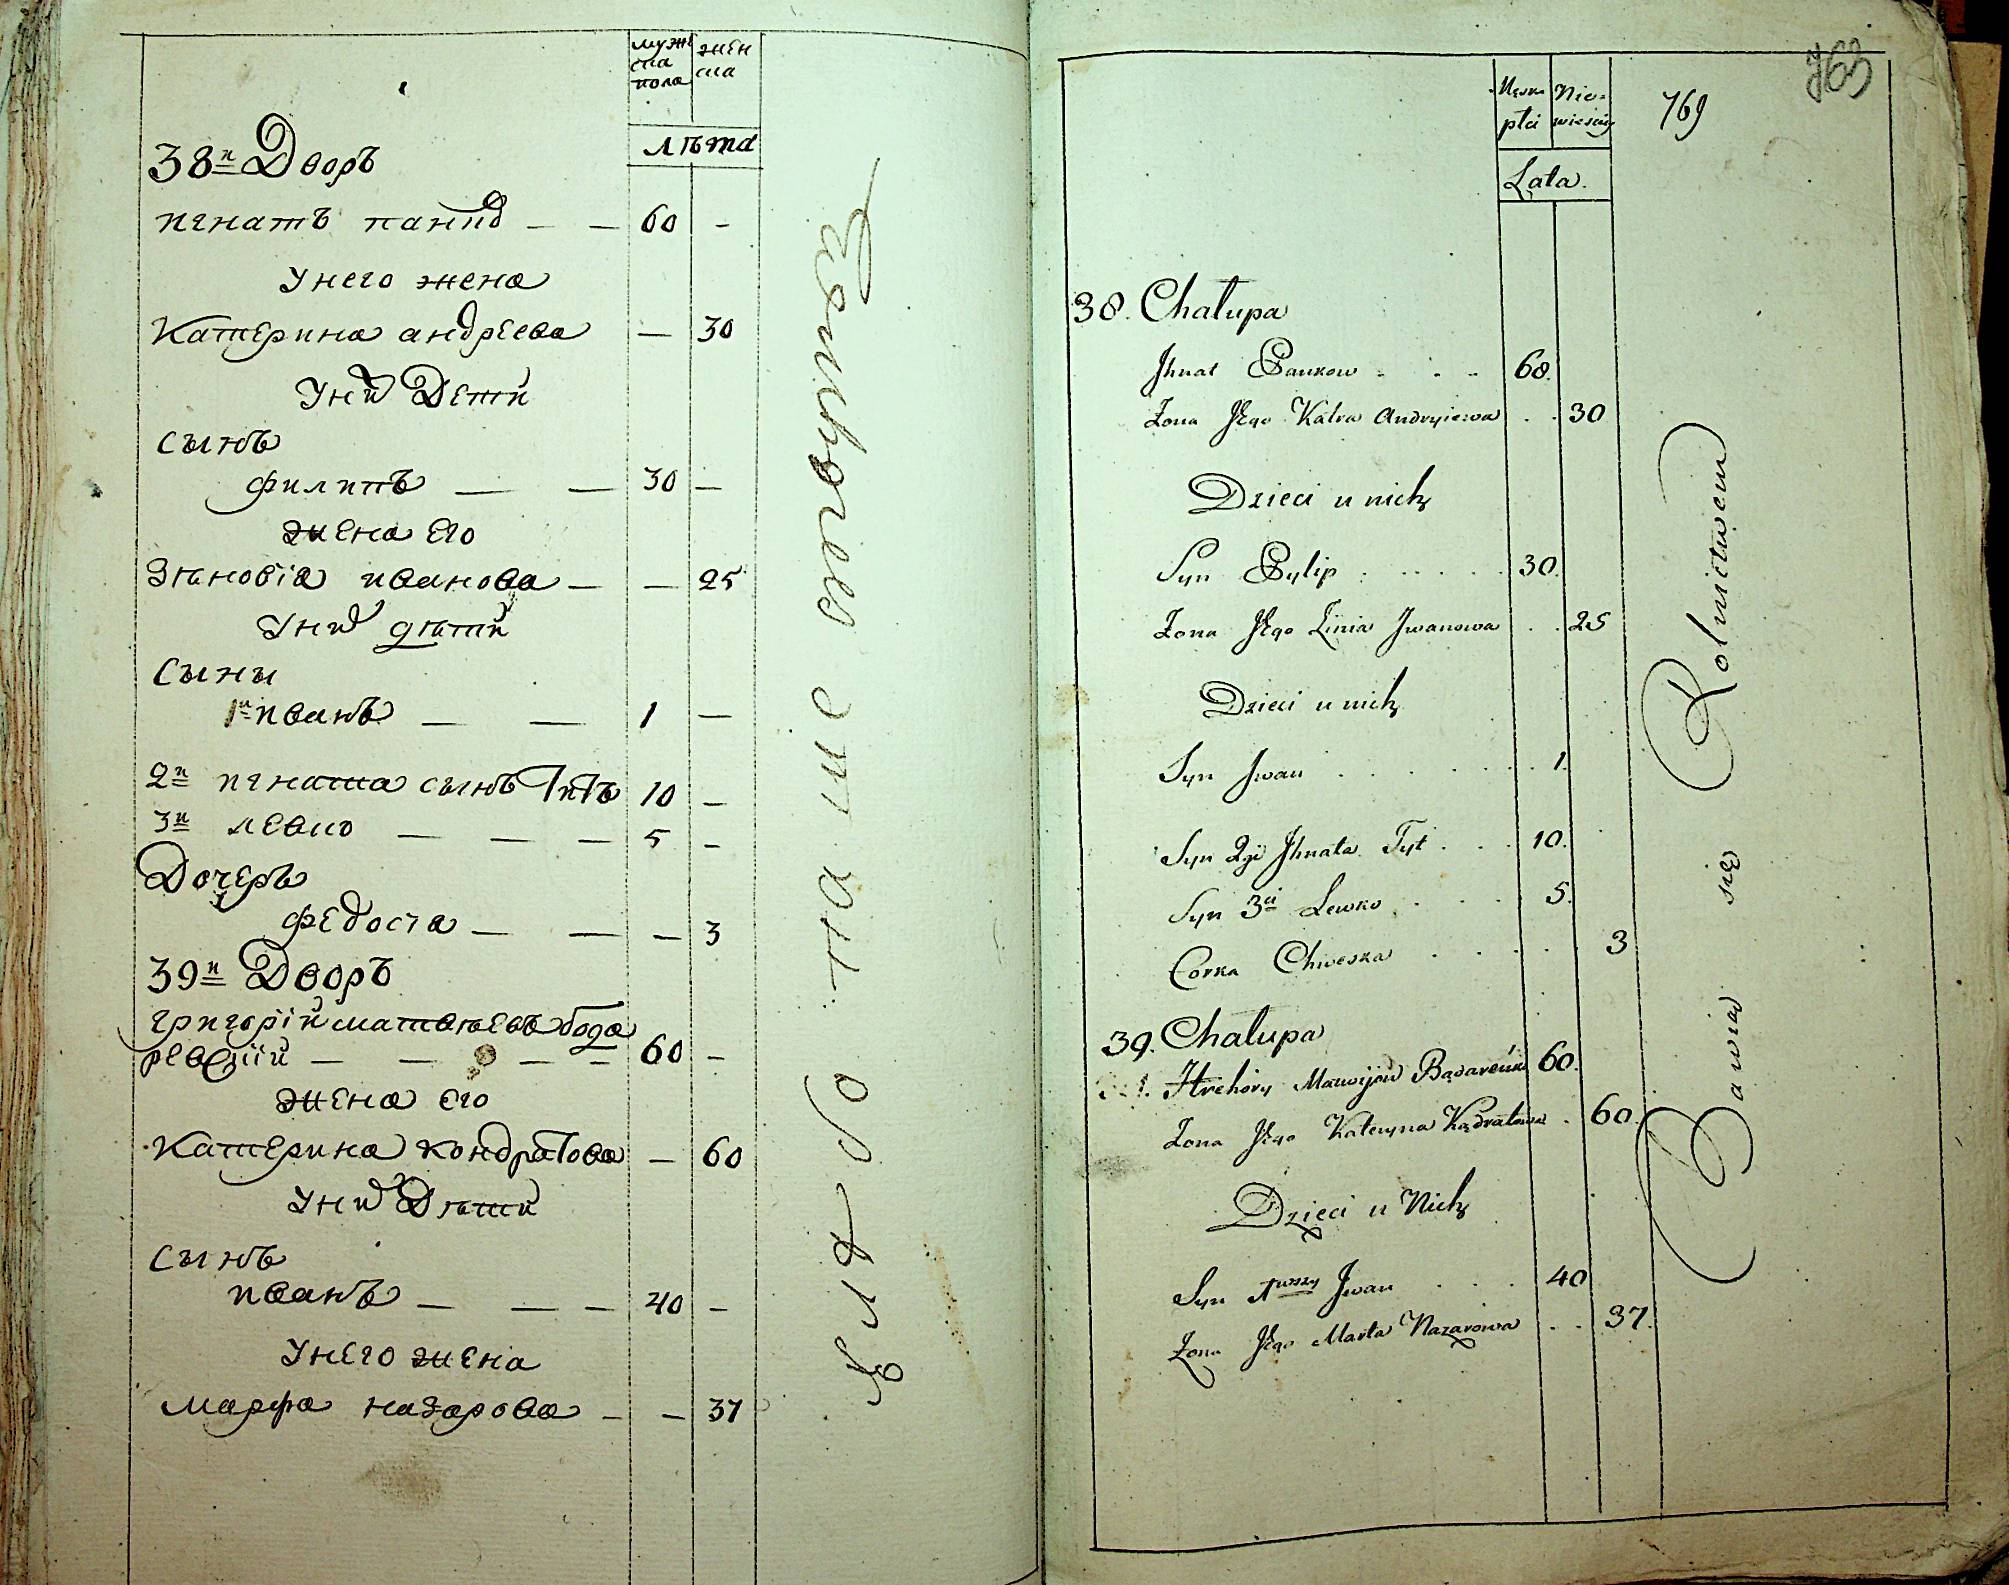 мужеска пола
женска
лѣта
38й Дворъ
игнатъ панко — — 60 —
У него жена
Катерина андреева — 30
У них Дети
Сынъ
филипъ — — 30 —
жена его
Зѣновіа иванова — — 25
У них дѣти
Сыны
1й иванъ — — 1 —
2й игната сынъ Титъ 10 —
3й левко — — — 5 —
Дочерь
федося — — — 3
39й Дворъ
григорій матвѣевъ бода
ревский — — — — 60 —
жена его
Катерина кондратова — 60
У них Дѣти
Сынъ
иванъ — — — 40 —
У него жена
марфа назарова — — 37
769
Męzka płci
Niewieściey
Lata.
38. Chałupa
Jhnat Pankow . . . 60.
Żona Jego Katra Andryiewa . . 30
Dzieci u nich
Syn Pylip . . . . . 30.
Żona Jego Zinia Jwanowa . . 25
Dzieci u nich
Syn Jwan . . . . . . . 1.
Syn 2gi Jhnata Tyt . . . 10.
Syn 3ci Lewko . . . . 5.
Corka Chweska . . . . . 3
39. Chałupa
Hrehory Matwijow 60.
Żona Jego Kateryna Kądratowa . 60.
Dzieci u Nich
Syn 1wszy Jwan . . . 40
Żona Jego Marta Nazarowa . . 37.
Bawią się Rolnictwem